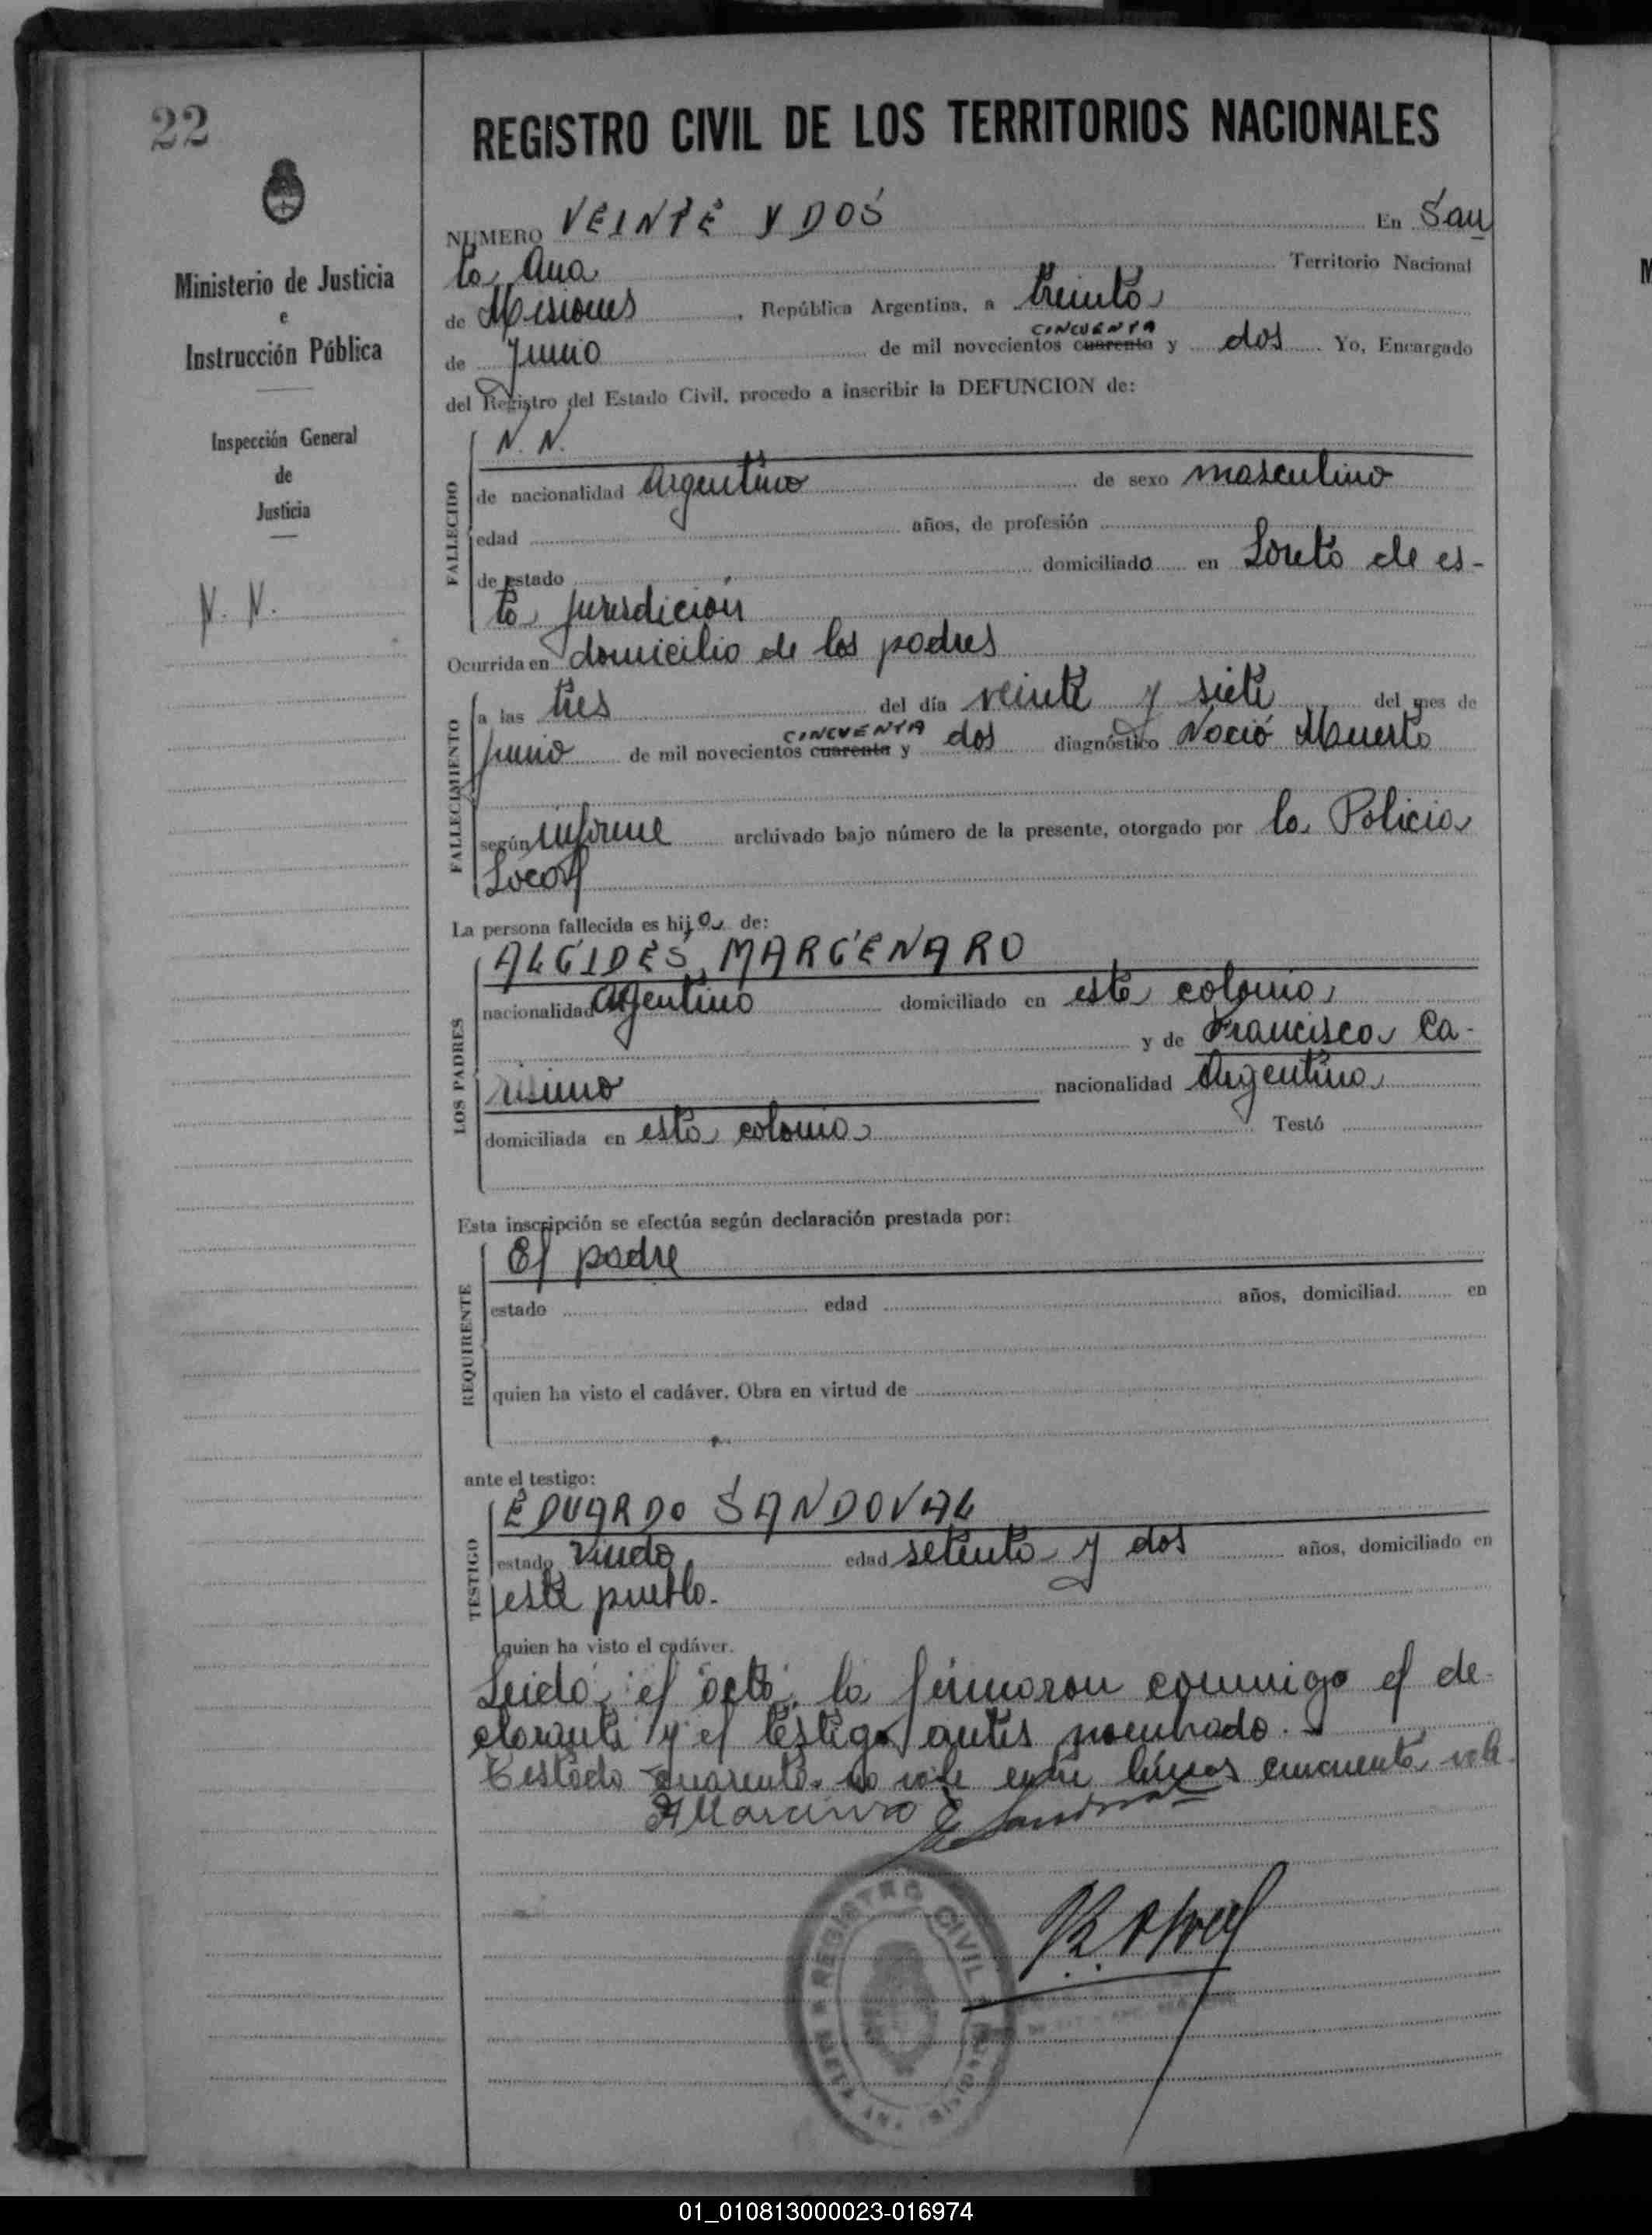 22
REGISTRO CIVIL DE LOS TERRITORIOS NACIONALES
Ministerio de Justicia
e
Instrucción Pública
Inspección General
de
Justicia
N. N.
NUMERO VEINTE Y DOS En San
ta Ana Territorio Nacional
de Misiones, República Argentina, a treinta
de Junio de mil novecientos cuarenta CINCUENTA y dos Yo, Encargado
del Registro del Estado Civil, procedo a inscribir la DEFUNCION de:
FALLECIDO
N. N.
de nacionalidad Argentino de sexo masculino
edad años, de profesión
de estado domiciliado en Loreto de es-
ta jurisdición
Ocurrida en domicilio de los padres
FALLECIMIENTO
a las tres del día veinte y siete del mes de
junio de mil novecientos cuarenta CINCUENTA y dos diagnóstico Nació Muerto
según informe archivado bajo número de la presente, otorgado por la Policia
Local
La persona fallecida es hijo de:
LOS PADRES
ALCIDES MARCENARO
nacionalidad Argentino domiciliado en esta colonia
y de Francisca Ca-
nacionalidad Argentina
domiciliada en esta colonia Testó
Esta inscripción se efectúa según declaración prestada por:
REQUIRENTE
El padre
estado edad años, domiciliad en
quien ha visto el cadáver. Obra en virtud de
ante el testigo:
TESTIGO
EDUARDO SANDOVAL
estado Viudo edad setenta y dos años, domiciliado en
este pueblo.
quien ha visto el cadáver.
Leida el acta, la firmaron conmigo el de-
clarante y el testigo antes nombrado.
Testado cuarenta. no vale entre líneas cincuenta vale.
E Sandoval
REGISTRO CIVIL
01_010813000023-016974